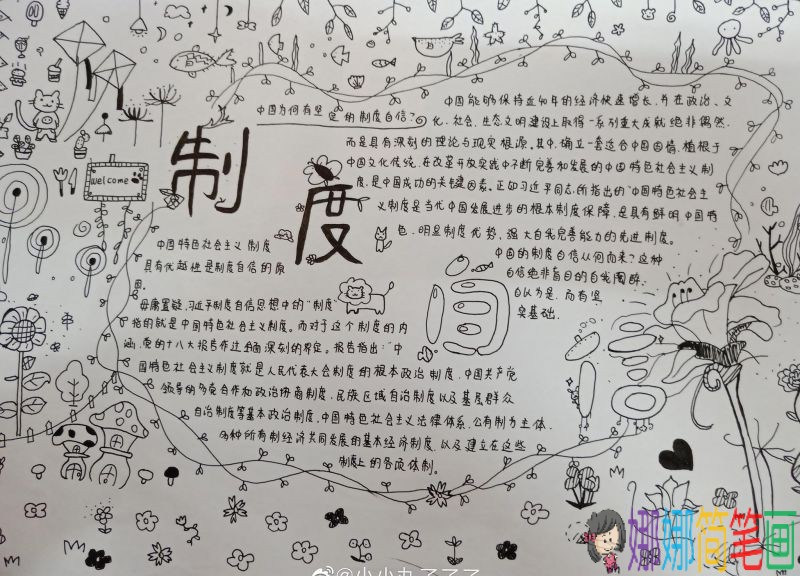 welcome
制度自信
中国为何有坚定的制度自信?
中国能够保持近40年的经济快速增长,并在政治、文
化、社会、生态文明建设上取得一系列重大成就绝非偶然,
而是具有深刻的理论与现实根源。其中,确立一套适合中国国情,植根于
中国文化传统,在改革开放实践中不断完善和发展的中国特色社会主义制
度,是中国成功的关键因素。正如习近平同志所指出的"中国特色社会主
义制度是当代中国发展进步的根本制度保障,是具有鲜明中国特
色、明显制度优势、强大自我完善能力的先进制度。
中国的制度自信从何而来?这种
自信绝非盲目的自我陶醉、
自以为是,而有坚
实基础.
中国特色社会主义制度
具有优越性是制度自信的原
毋庸置疑,习近平制度自信思想中的"制度"
指的就是中国特色社会主义制度。而对于这个制度的内
涵,党的十八大报告作过全面深刻的界定。报告指出:"中
国特色社会主义制度就是人民代表大会制度的根本政治制度,中国共产党
领导的多党合作和政治协商制度,民族区域自治制度以及基层群众
自治制度等基本政治制度,中国特色社会主义法律体系,公有制为主体,
多种所有制经济共同发展的基本经济制度,以及建立在这些
制度上的各项体制。
@小小丸子了了了
娜娜简笔画